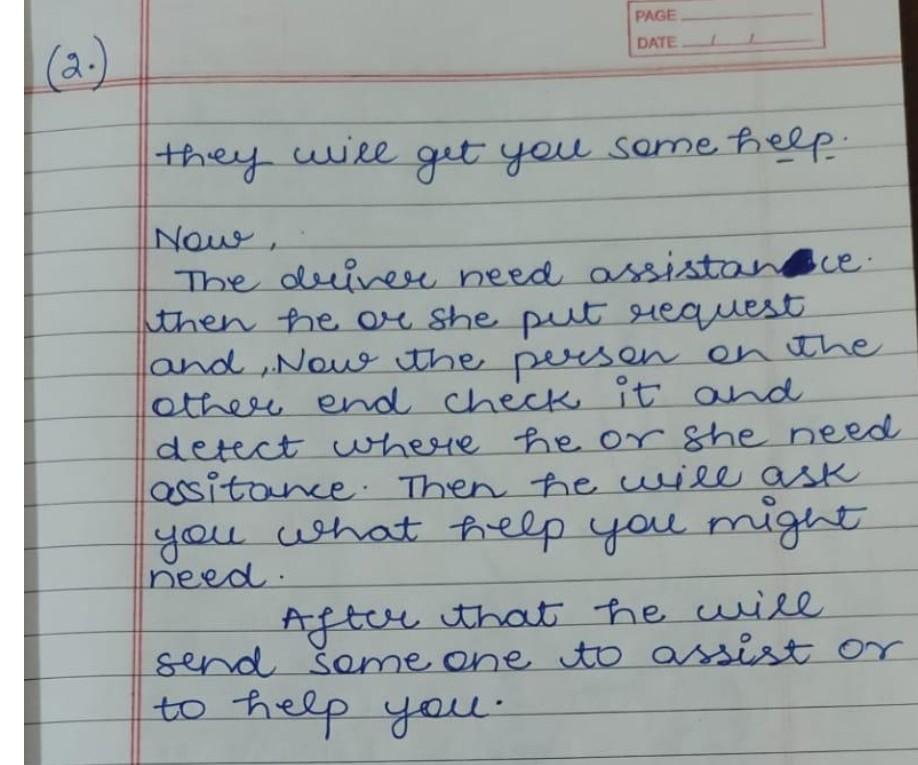 PAGE
DATE / /
(2.)
they will get you some help.
Now,
The driver need assistance.
then he or she put request
and, Now the person on the
other end check it and
detect where he or she need
assitance. Then he will ask
you what help you might
need.
After that he will
send some one to assist or
to help you.